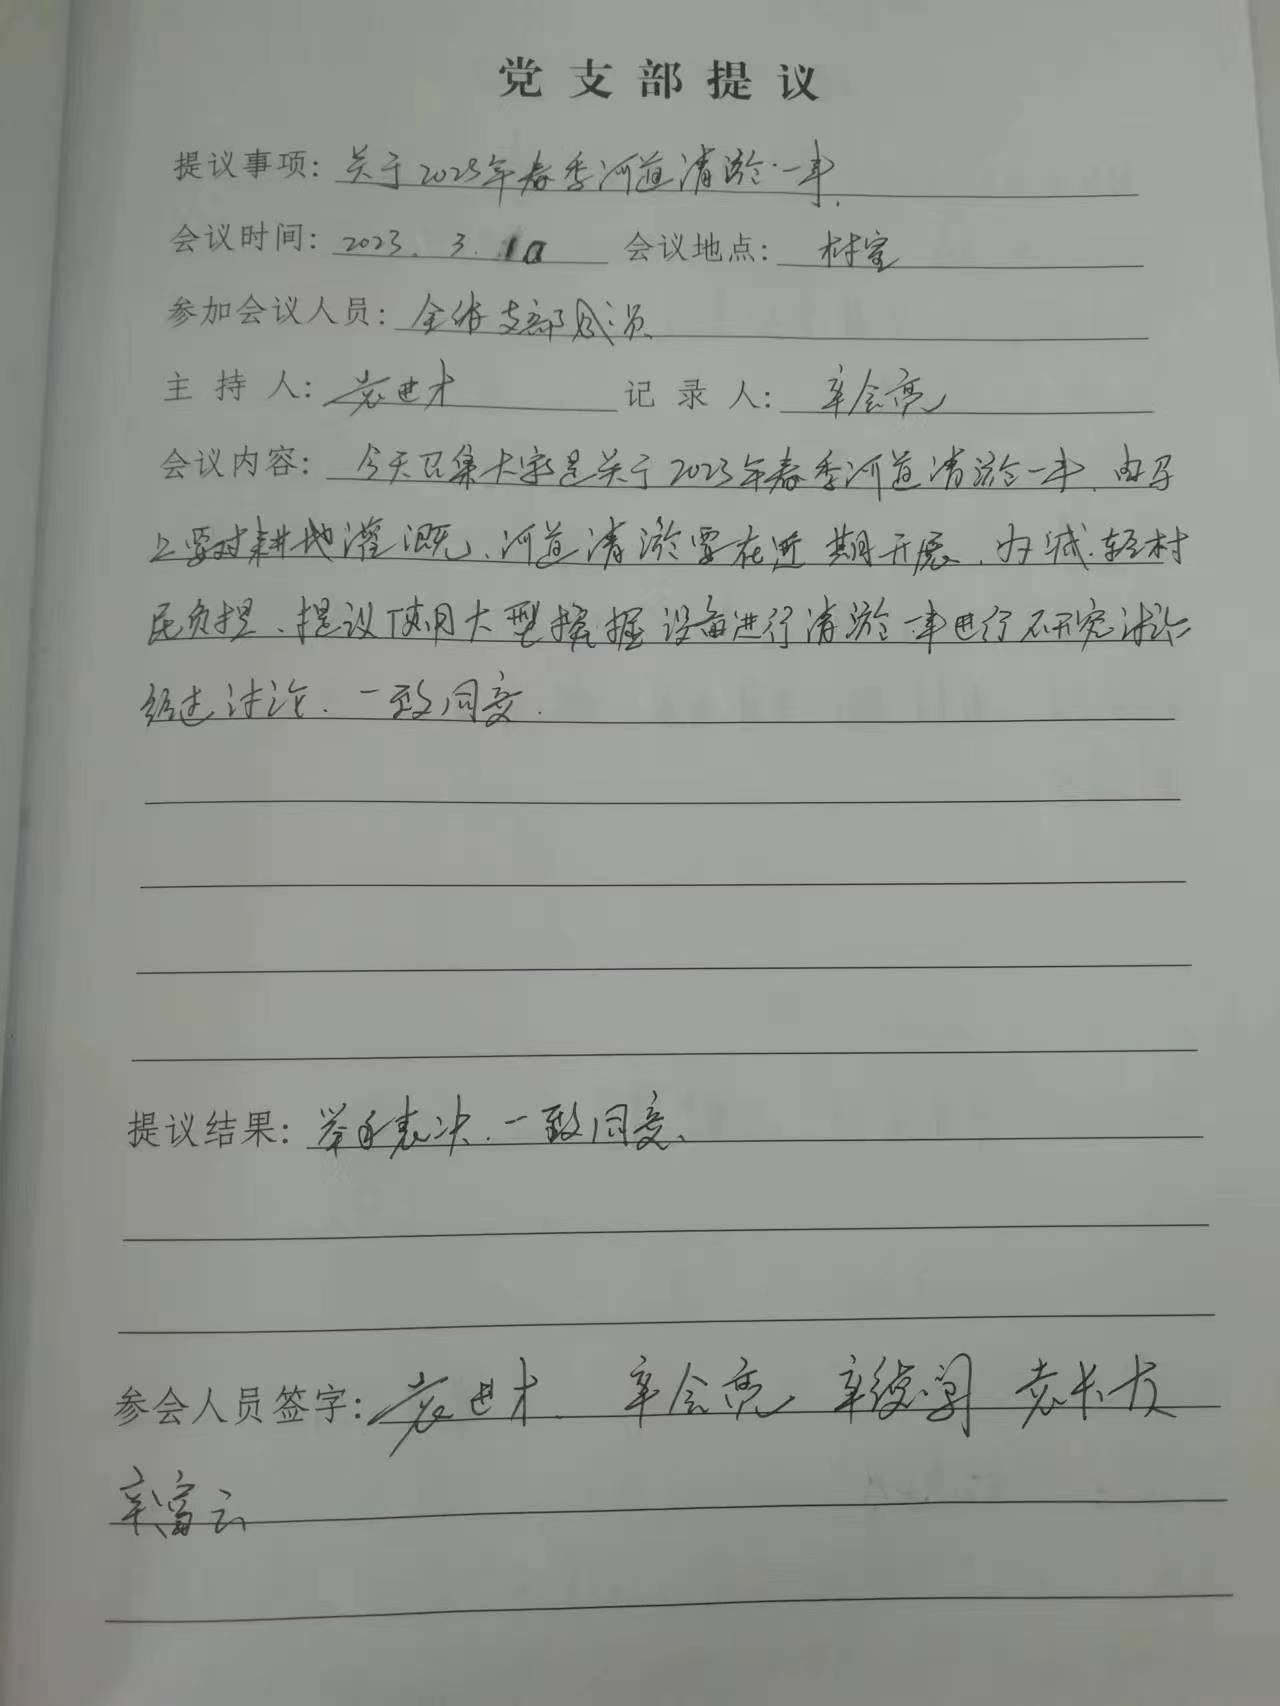 党支部提议
提议事项: 关于2023年春季河道清淤一事.
会议时间: 2023. 3. 10 会议地点: 村室
参加会议人员: 全体支部成员
主持人: 袁进才 记录人: 辛会亮
会议内容: 今天召集大家是关于2023年春季河道清淤一事. 由于
要对耕地灌溉、河道清淤要在近期开展. 为减轻村
民负担、提议使用大型挖掘设备进行清淤一事进行研究讨论
经过讨论. 一致同意.
提议结果: 举手表决. 一致同意、
参会人员签字: 袁进才. 辛会亮 辛 袁长
辛富云